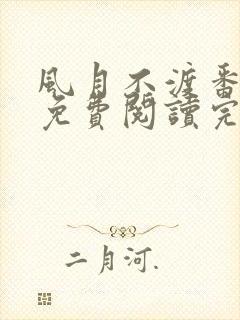 風月不渡番
免費閱讀完
二月河.